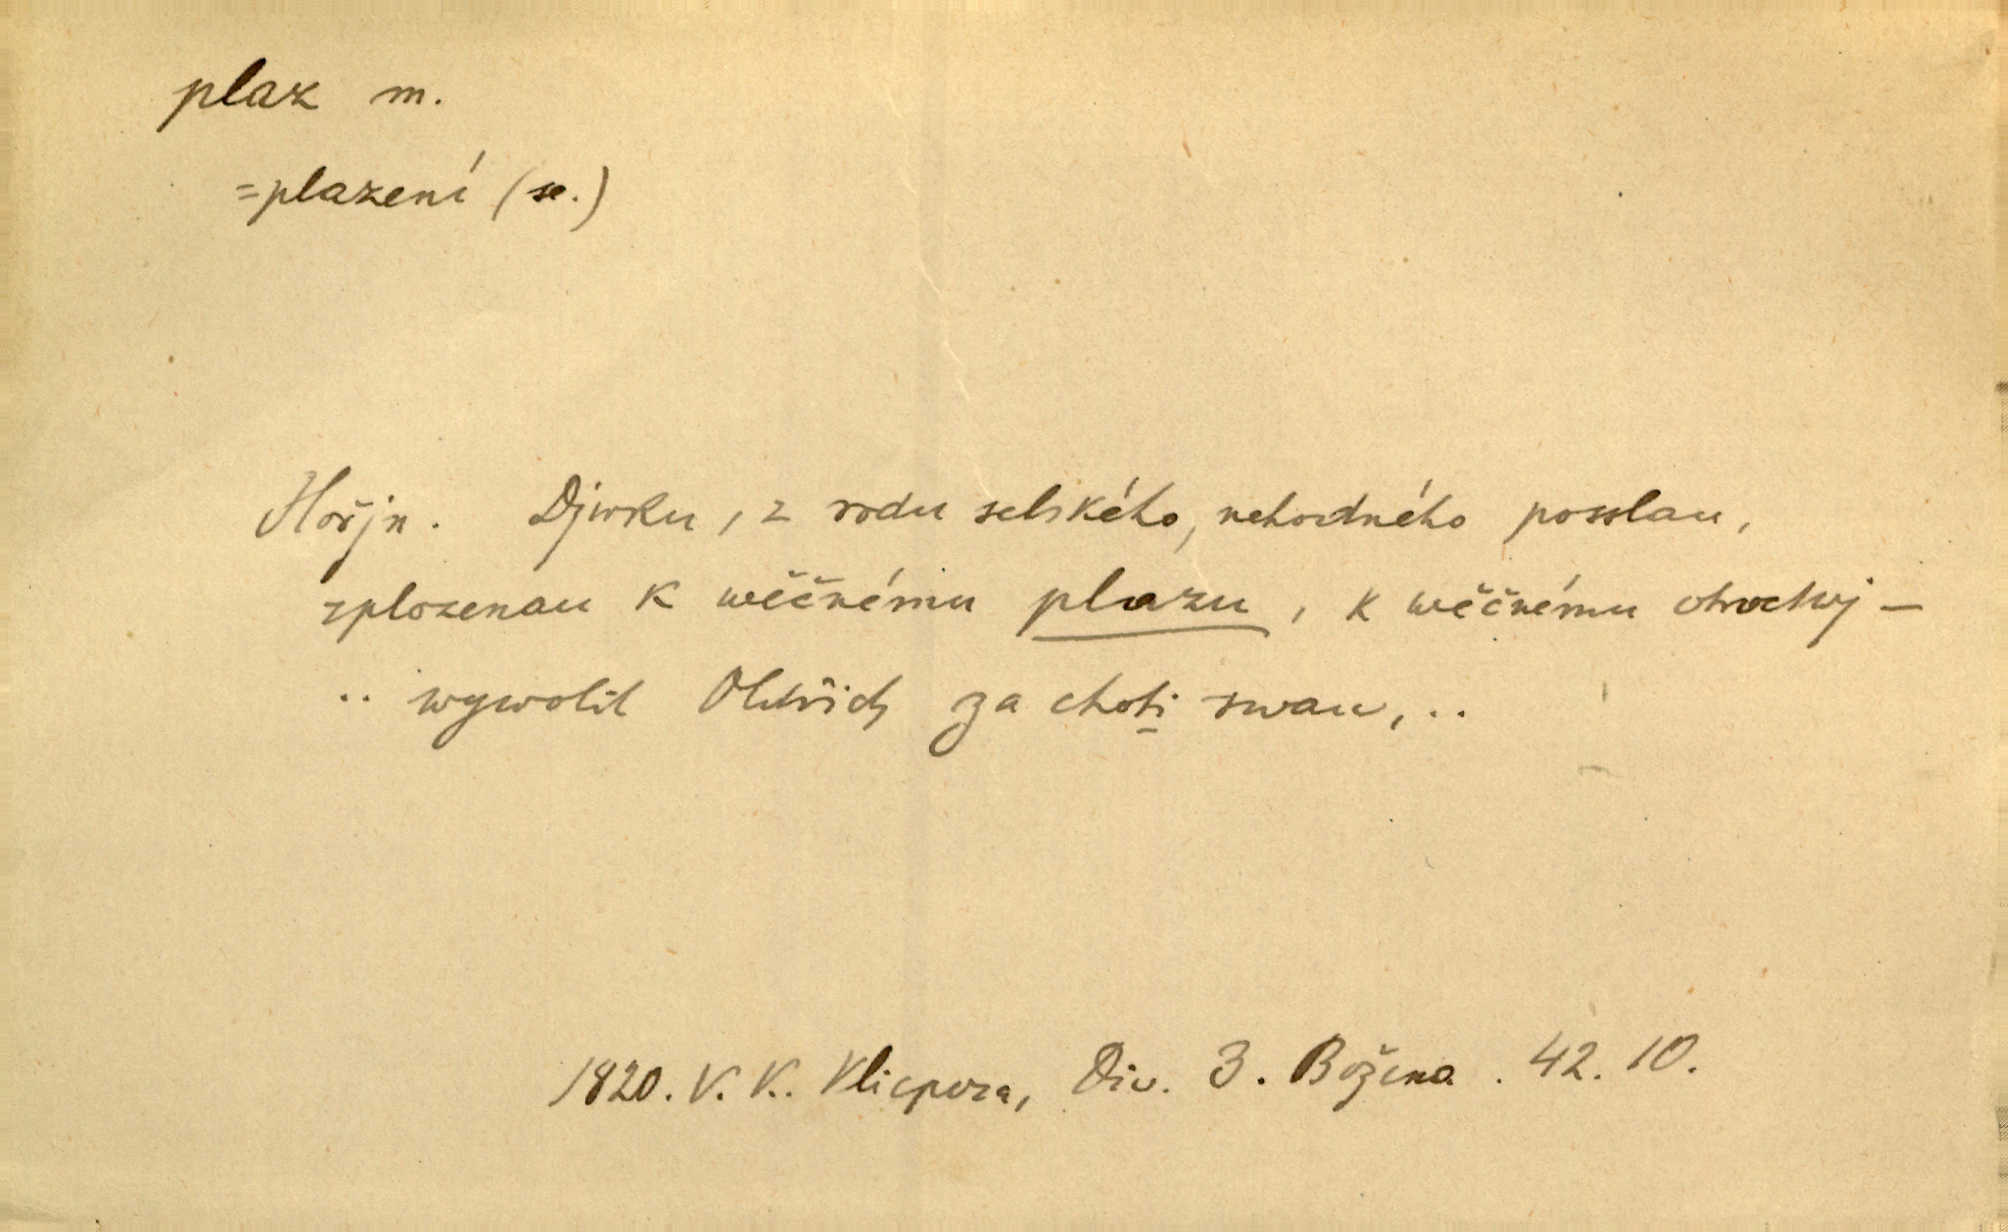 plaz m.
=plazení (se.)
Hořjn. Djwku, z rodu selského, nehodného posslau,
zplozenau k wěčnému plazu, k wěčnému otroctwj –
.. wywolil Oldřich za choti swau, ..
1820. V. K. Klicpera, Div. 3. Božena. 42. 10.